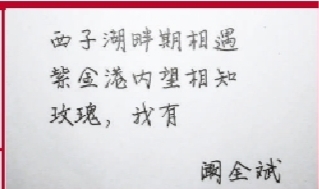 西子湖畔期相遇
紫金港内望相知
玫瑰，我有
阚全斌